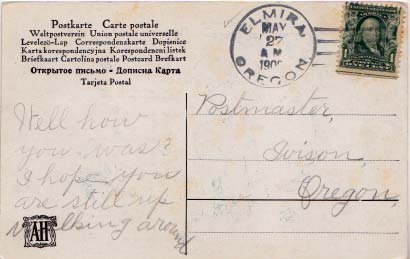 Postkarte Carte postale
Weltpostverein Union postale universelle
Levelező-Lap Correspondenzkarte Dopisnice
Karta korespondencyjna Korespondencni listek
Briefkaart Cartolina postale Postcard Brefkort
Открытое письмо - Дописна Карта
Tarjeta Postal
ELMIRA
MAY
27
A M
OREGON
Postmaster,
Ivison,
Oregon,
Well how
you was?
I hope you
are still up
walking around
AH